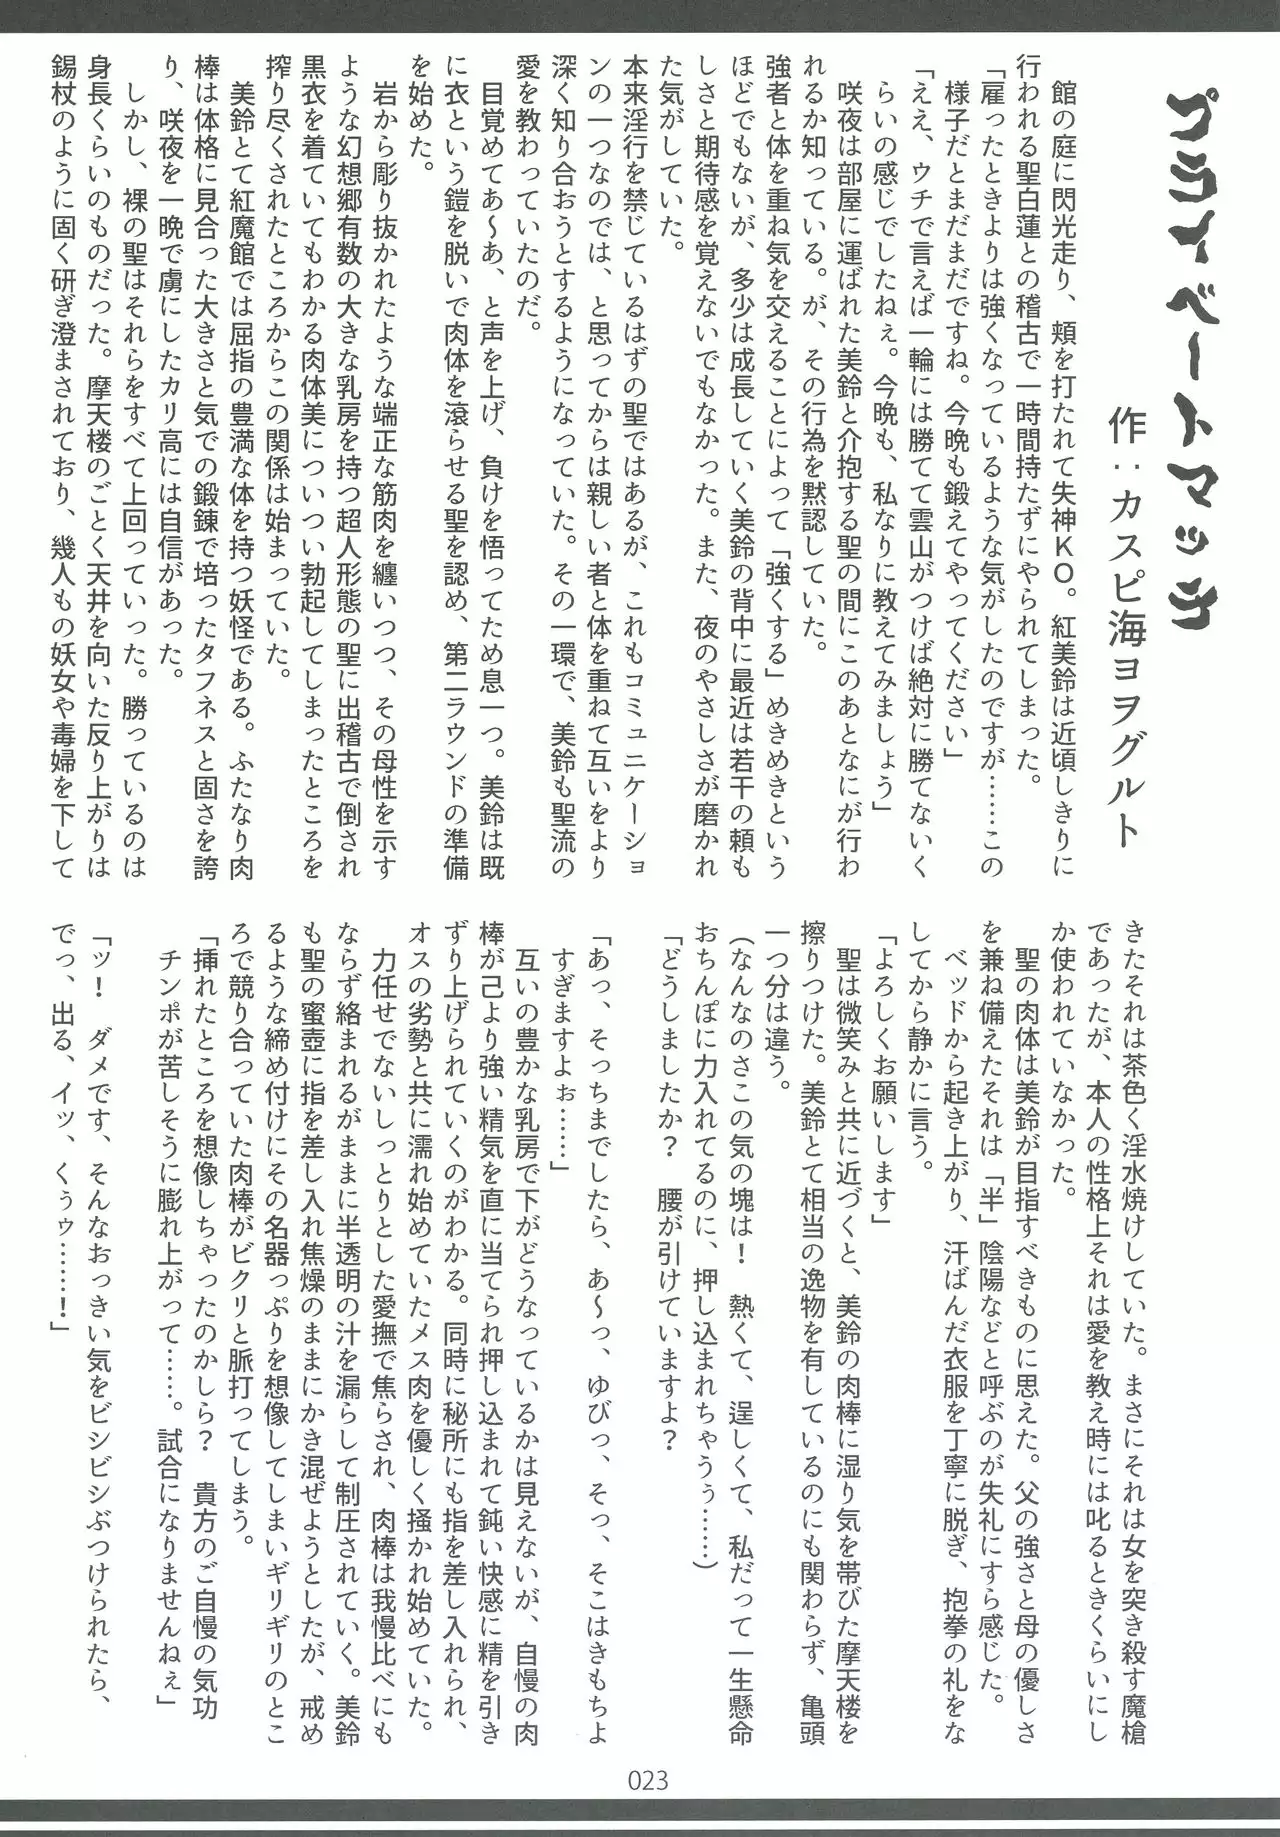 プライベートマッチ
作：カスピ海ヨヲグルト
　館の庭に閃光走り、頬を打たれて失神ＫＯ。紅美鈴は近頃しきりに
行われる聖白蓮との稽古で一時間持たずにやられてしまった。
「雇ったときよりは強くなっているような気がしたのですが……この
様子だとまだまだですね。今晩も鍛えてやってください」
「ええ、ウチで言えば一輪には勝てて雲山がつけば絶対に勝てないく
らいの感じでしたねぇ。今晩も、私なりに教えてみましょう」
　咲夜は部屋に運ばれた美鈴と介抱する聖の間にこのあとなにが行わ
れるか知っている。が、その行為を黙認していた。
強者と体を重ね気を交えることによって「強くする」めきめきという
ほどでもないが、多少は成長していく美鈴の背中に最近は若干の頼も
しさと期待感を覚えないでもなかった。また、夜のやさしさが磨かれ
た気がしていた。
本来淫行を禁じているはずの聖ではあるが、これもコミュニケーショ
ンの一つなのでは、と思ってからは親しい者と体を重ねて互いをより
深く知り合おうとするようになっていた。その一環で、美鈴も聖流の
愛を教わっていたのだ。
　目覚めてあ〜あ、と声を上げ、負けを悟ってため息一つ。美鈴は既
に衣という鎧を脱いで肉体を滾らせる聖を認め、第二ラウンドの準備
を始めた。
　岩から彫り抜かれたような端正な筋肉を纏いつつ、その母性を示す
ような幻想郷有数の大きな乳房を持つ超人形態の聖に出稽古で倒され
黒衣を着ていてもわかる肉体美についつい勃起してしまったところを
搾り尽くされたところからこの関係は始まっていた。
　美鈴とて紅魔館では屈指の豊満な体を持つ妖怪である。ふたなり肉
棒は体格に見合った大きさと気での鍛錬で培ったタフネスと固さを誇
り、咲夜を一晩で虜にしたカリ高には自信があった。
　しかし、裸の聖はそれらをすべて上回っていった。勝っているのは
身長くらいのものだった。摩天楼のごとく天井を向いた反り上がりは
錫杖のように固く研ぎ澄まされており、幾人もの妖女や毒婦を下して
きたそれは茶色く淫水焼けしていた。まさにそれは女を突き殺す魔槍
であったが、本人の性格上それは愛を教え時には叱るときくらいにし
か使われていなかった。
　聖の肉体は美鈴が目指すべきものに思えた。父の強さと母の優しさ
を兼ね備えたそれは「半」陰陽などと呼ぶのが失礼にすら感じた。
　ベッドから起き上がり、汗ばんだ衣服を丁寧に脱ぎ、抱拳の礼をな
してから静かに言う。
「よろしくお願いします」
　聖は微笑みと共に近づくと、美鈴の肉棒に湿り気を帯びた摩天楼を
擦りつけた。美鈴とて相当の逸物を有しているのにも関わらず、亀頭
一つ分は違う。
（なんなのさこの気の塊は！　熱くて、逞しくて、私だって一生懸命
おちんぽに力入れてるのに、押し込まれちゃうぅ……）
「どうしましたか？　腰が引けていますよ？
「あっ、そっちまでしたら、あ〜っ、ゆびっ、そっ、そこはきもちよ
すぎますよぉ……」
　互いの豊かな乳房で下がどうなっているかは見えないが、自慢の肉
棒が己より強い精気を直に当てられ押し込まれて鈍い快感に精を引き
ずり上げられていくのがわかる。同時に秘所にも指を差し入れられ、
オスの劣勢と共に濡れ始めていたメス肉を優しく掻かれ始めていた。
　力任せでないしっとりとした愛撫で焦らされ、肉棒は我慢比べにも
ならず絡まれるがままに半透明の汁を漏らして制圧されていく。美鈴
も聖の蜜壺に指を差し入れ焦燥のままにかき混ぜようとしたが、戒め
るような締め付けにその名器っぷりを想像してしまいギリギリのとこ
ろで競り合っていた肉棒がビクリと脈打ってしまう。
「挿れたところを想像しちゃったのかしら？　貴方のご自慢の気功
チンポが苦しそうに膨れ上がって……。試合になりませんねぇ」
「ッ！　ダメです、そんなおっきい気をビシビシぶつけられたら、
でっ、出る、イッ、くぅゥ……！」
023